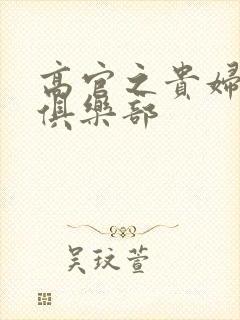 高官之貴婦
俱樂部
吴玟萱